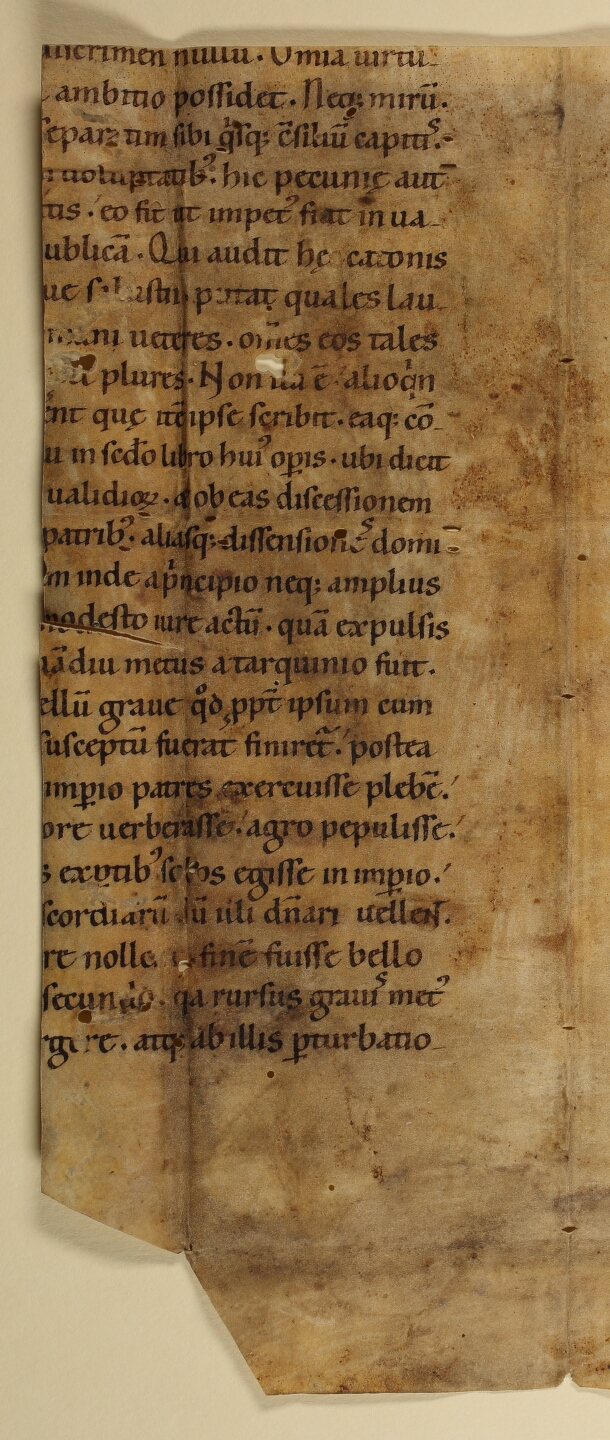 nullū. Omia uirtu-
ambitio possidet. Neq; mirū.
sibi q̇sq; c̄siliū capitis.
uoluptatib᾽. hic pecunię aut
tis. eo fit ut impet᾽ fiat in ua-
ublicā. Qui audit hę catonis
putat quales lau-
ueteres. om̄es eos tales
plures. Non ita ē alioq̇n
ent quę itē ipse scribit. eaq; cō-
u in sc̄do libro hui᾽ op̄is. ubi dicit
ualidioꝝ. & ob eas discessionem
patrib᾽. aliasq; dissensiones domi
inde a ṗncipio neq; amplius
modesto iure actū. quā expulsis
diu metus a tarquinio fuit.
ellū graue qd̊ ꝓpt̄ ipsum cum
susceptū fuerat finiret᾽. postea
imꝑio patres exercuisse plebē.
ore uerberasse. agro pepulisse.
s exptib᾽ solos egisse in imꝑio.
scordiarū illi dn̄ari uellent.
re nollent finē fuisse bello
secundo. qa rursus grauis met᾽
gere. atq; ab illis ꝑturbatio-